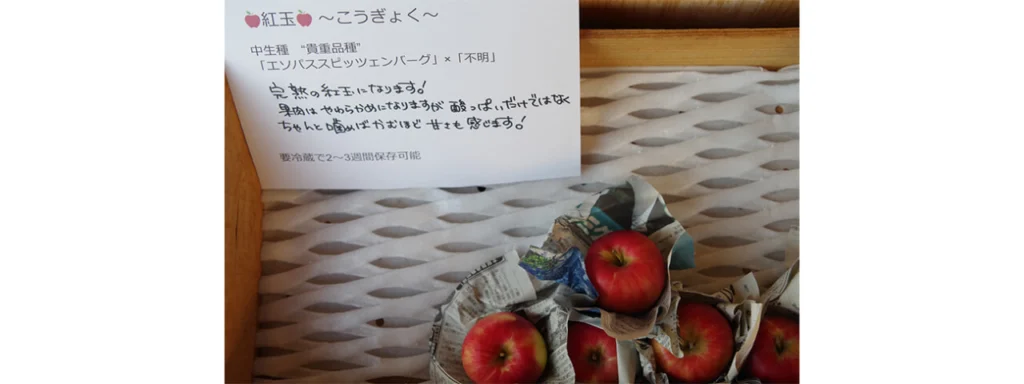 🍎紅玉🍎 〜こうぎょく〜
中生種 “貴重品種”
「エソパススピッツェンバーグ」×「不明」
完熟の紅玉になります!
果肉はやわらかめになりますが 酸っぱいだけではなく
ちゃんと噛めばかむほど 甘さも感じます!
要冷蔵で2〜3週間保存可能